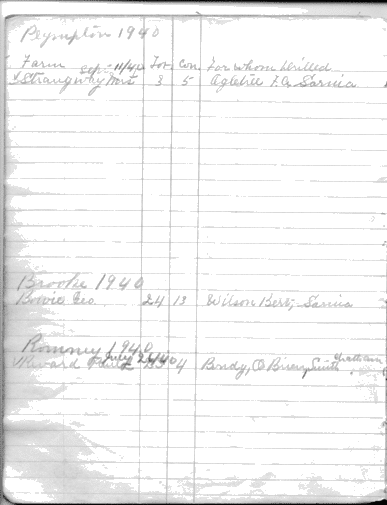 Plympton 1940
Farm Sept 11/40 Lot Con. For whom Drilled
Strangway Mrs 3 5 Ogletree F.A. Sarnia
Brooke 1940
Bowie Geo. 24 13 Wilson Bert, Sarnia
Romney 1940
July 26/40 4 Bondy, O Brien, Smith Chatham